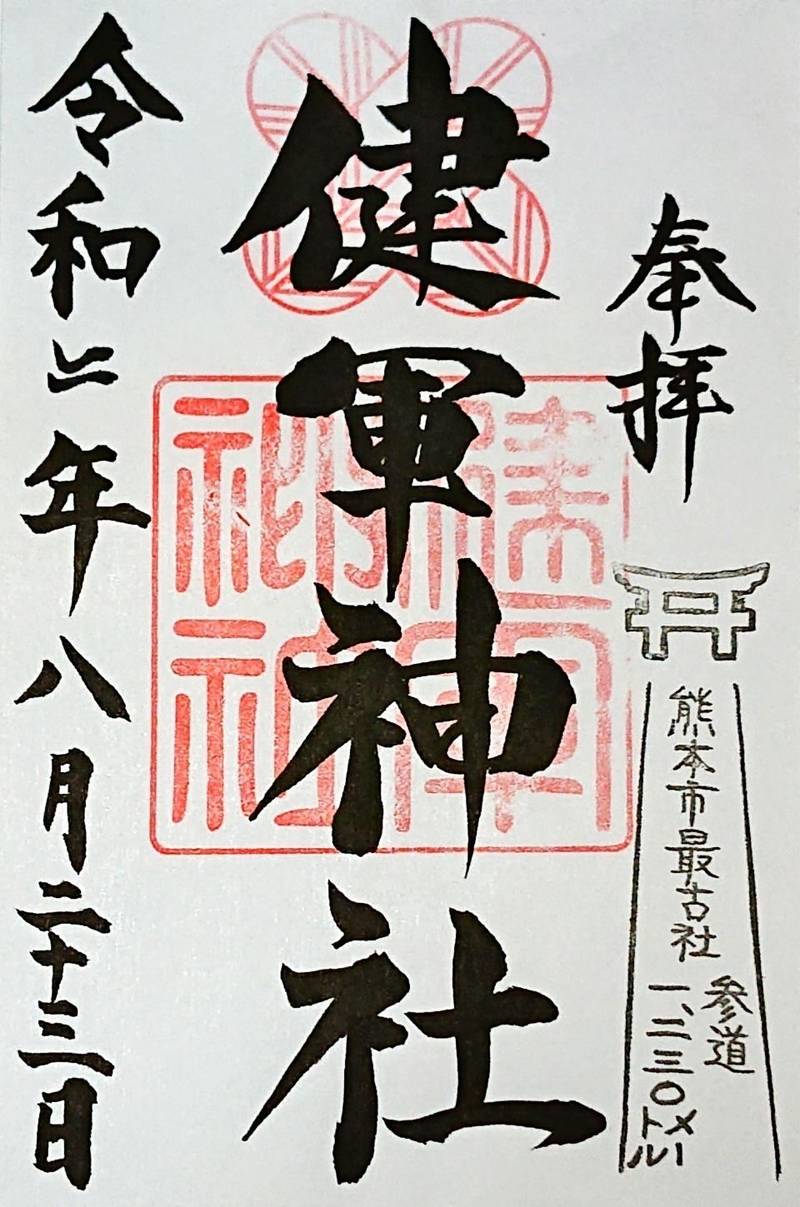 奉拝
熊本市最古社
参道
一、二三〇メートル
健軍神社
健軍
神社
令和二年八月二十三日